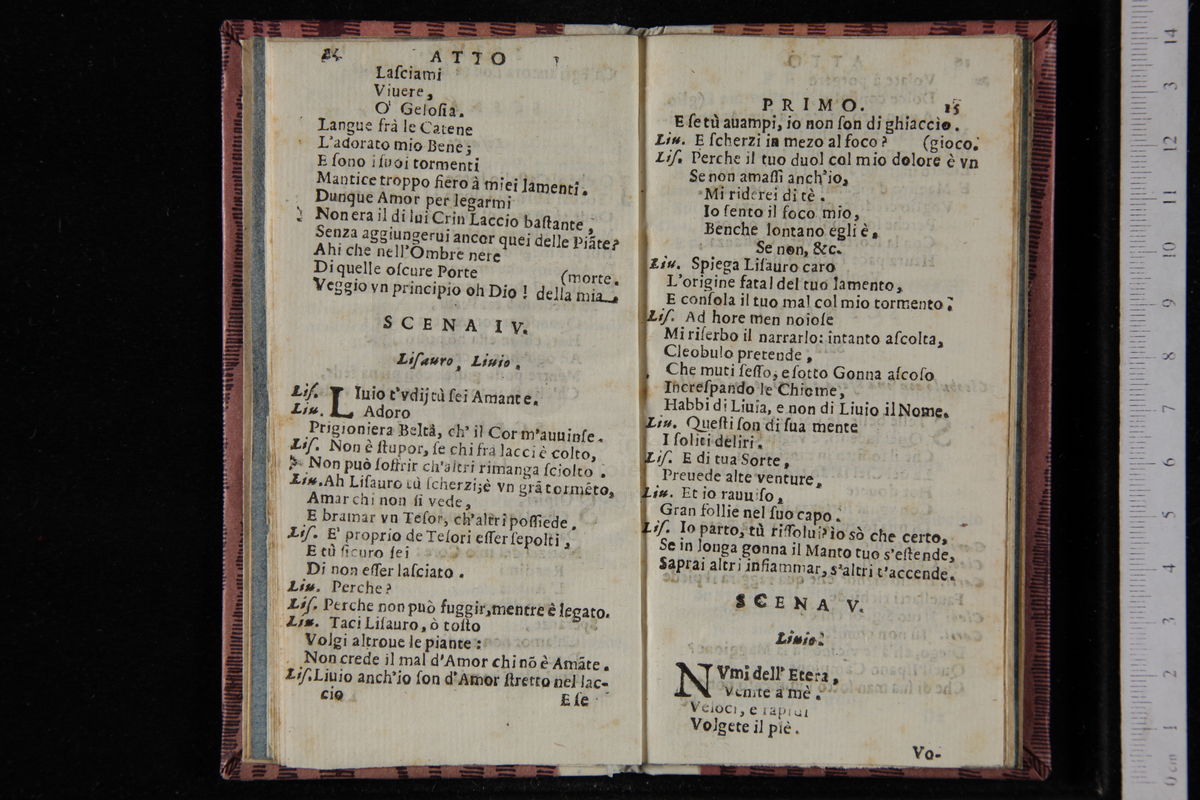 24 ATTO
Laſciami
Viuere,
O' Geloſia.
Langue frà le Catene
L'adorato mio Bene;
E ſono i ſuoi tormenti
Mantice troppo fiero à miei lamenti.
Dunque Amor per legarmi
Non era il di lui Crin Laccio baſtante,
Senza aggiungerui ancor quei delle Piāte?
Ahi che nell'Ombre nere
Di quelle oſcure Porte (morte.
Veggio vn principio oh Dio! della mia
SCENA IV.
Liſauro, Liuio.
Liſ. LIuio t'vdij tù ſei Amante.
Liu. Adoro
Prigioniera Beltà, ch'il Cor m'auuinſe.
Liſ. Non è ſtupor, ſe chi frà lacci è colto,
Non può ſoffrir ch'altri rimanga ſciolto.
Liu. Ah Liſauro tù ſcherzi; è vn grā tormēto,
Amar chi non ſi vede,
E bramar vn Teſor, ch'altri poſſiede.
Liſ. E' proprio de Teſori eſſer ſepolti,
E tù ſicuro ſei
Di non eſſer laſciato.
Liu. Perche?
Liſ. Perche non può fuggir, mentre è legato.
Liu. Taci Liſauro, ò toſto
Volgi altroue le piante:
Non crede il mal d'Amor chi nō è Amāte.
Liſ. Liuio anch'io ſon d'Amor ſtretto nel lac-
cio E ſe
PRIMO. 15
E ſe tù auampi, io non ſon di ghiaccio.
Liu. E ſcherzi in mezo al foco? (gioco.
Liſ. Perche il tuo duol col mio dolore è vn
Se non amaſſi anch'io,
Mi riderei di tè.
Io ſento il foco mio,
Benche lontano egli è.
Se non, &c.
Liu. Spiega Liſauro caro
L'origine fatal del tuo lamento,
E conſola il tuo mal col mio tormento.
Liſ. Ad hore men noioſe
Mi riſerbo il narrarlo: intanto aſcolta,
Cleobulo pretende,
Che muti ſeſſo, e ſotto Gonna aſcoſo
Increſpando le Chiome,
Habbi di Liuia, e non di Liuio il Nome.
Liu. Queſti ſon di ſua mente
I ſoliti deliri.
Liſ. E di tua Sorte,
Preuede alte venture,
Liu. Et io rauuiſo,
Gran follie nel ſuo capo.
Liſ. Io parto, tù riſſolui? io sò che certo,
Se in longa gonna il Manto tuo s'eſtende,
Saprai altri infiammar, s'altri t'accende.
SCENA V.
Liuio.
NVmi dell'Etera,
Venite a mè.
Veloci, e rapidi
Volgete il piè.
Vo-